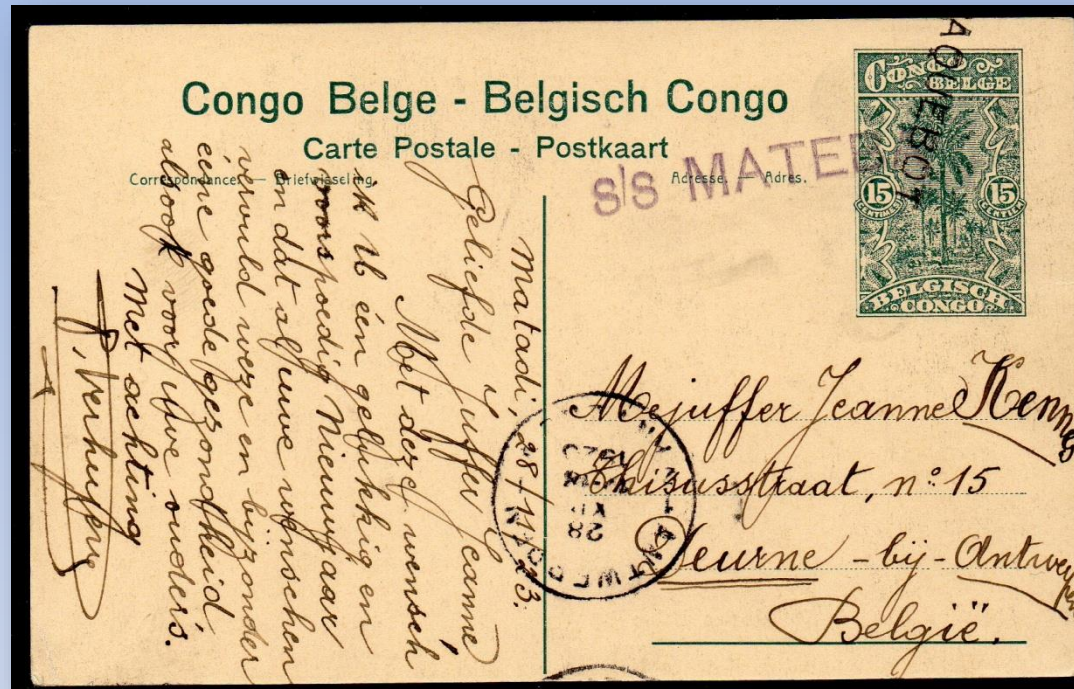 Congo Belge - Belgisch Congo
Carte Postale - Postkaart
Correspondance. — Briefwisseling.
Adresse. — Adres.
CONGO BELGE
15 CENTIMES
15 CENTIEM
BELGISCH CONGO
PAQUEBOT
s/s MATE
Matadi, 28/11/23.
Geliefde Juffer Jeanne
Met dezen wensch
ik U een gelukkig en
voorspoedig Nieuwjaar
en dat al uwe wenschen
vervuld weze en bijzonder
eene goede gezondheid
alsook voor uwe ouders.
Met achting
Mejuffer Jeanne Kennes
straat, nº 15
Deurne - bij - Antwerpen
België.
ANTWERPEN
28
XII